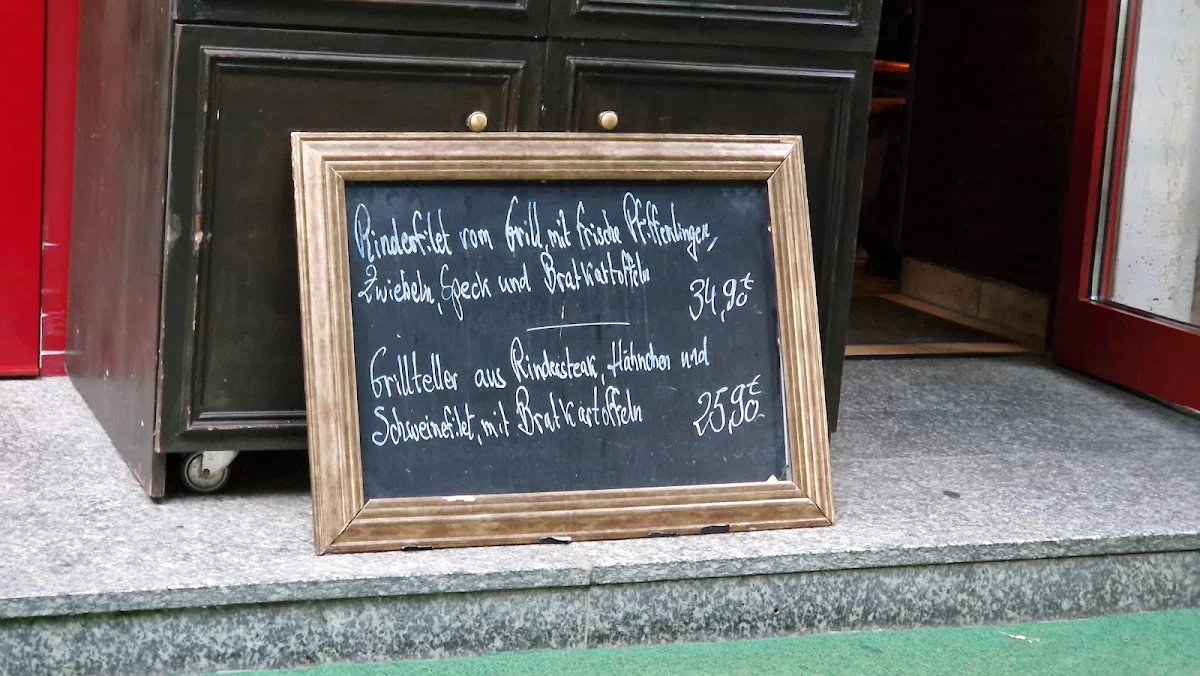 Rinderfilet vom Grill, mit frische Pfifferlingen,
Zwiebeln, Speck und Bratkartoffeln
34,90€
Grillteller aus Rindersteak, Hähnchen und
Schweinefilet, mit Bratkartoffeln
25,90€